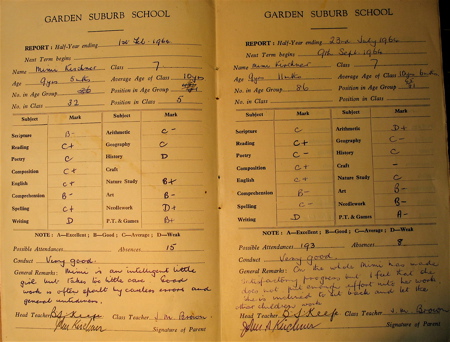 GARDEN SUBURB SCHOOL
REPORT: Half-Year ending 1st Feb. 1964
Next Term begins
Name Mimi Kirchner Class 7
Age 9yrs 5mths Average Age of Class 10yrs
No. in Age Group 86 Position in Age Group
No. in Class 32 Position in Class 5
Subject Mark Subject Mark
Scripture B- Arithmetic C-
Reading C+ Geography C
Poetry C History D
Composition C+ Craft
English C+ Nature Study B+
Comprehension B- Art B-
Spelling C+ Needlework D+
Writing D P.T. & Games B+
NOTE: A—Excellent; B—Good; C—Average; D—Weak
Possible Attendances Absences 15
Conduct Very good.
General Remarks: Mimi is an intelligent little
girl but takes too little care. Good
work is often spoilt by careless errors and
general untidiness.
Head Teacher D J Keefe Class Teacher J. M. Brown
John Kirchner Signature of Parent
GARDEN SUBURB SCHOOL
REPORT: Half-Year ending 23rd July 1964
Next Term begins 9th Sept. 1964
Name Mimi Kirchner Class 7
Age 9yrs 11mths Average Age of Class 10yrs
No. in Age Group 86 Position in Age Group
No. in Class Position in Class
Subject Mark Subject Mark
Scripture C Arithmetic D+
Reading C+ Geography C
Poetry C- History C
Composition C+ Craft -
English C+ Nature Study C
Comprehension B- Art B-
Spelling C- Needlework B-
Writing D P.T. & Games A-
NOTE: A—Excellent; B—Good; C—Average; D—Weak
Possible Attendances 193 Absences 8
Conduct Very good.
General Remarks: On the whole Mimi has made
satisfactory progress but I feel that she
does not put enough effort into her work
She is inclined to sit back and let the
other children work
Head Teacher D J Keefe Class Teacher J. M. Brown
John A Kirchner Signature of Parent